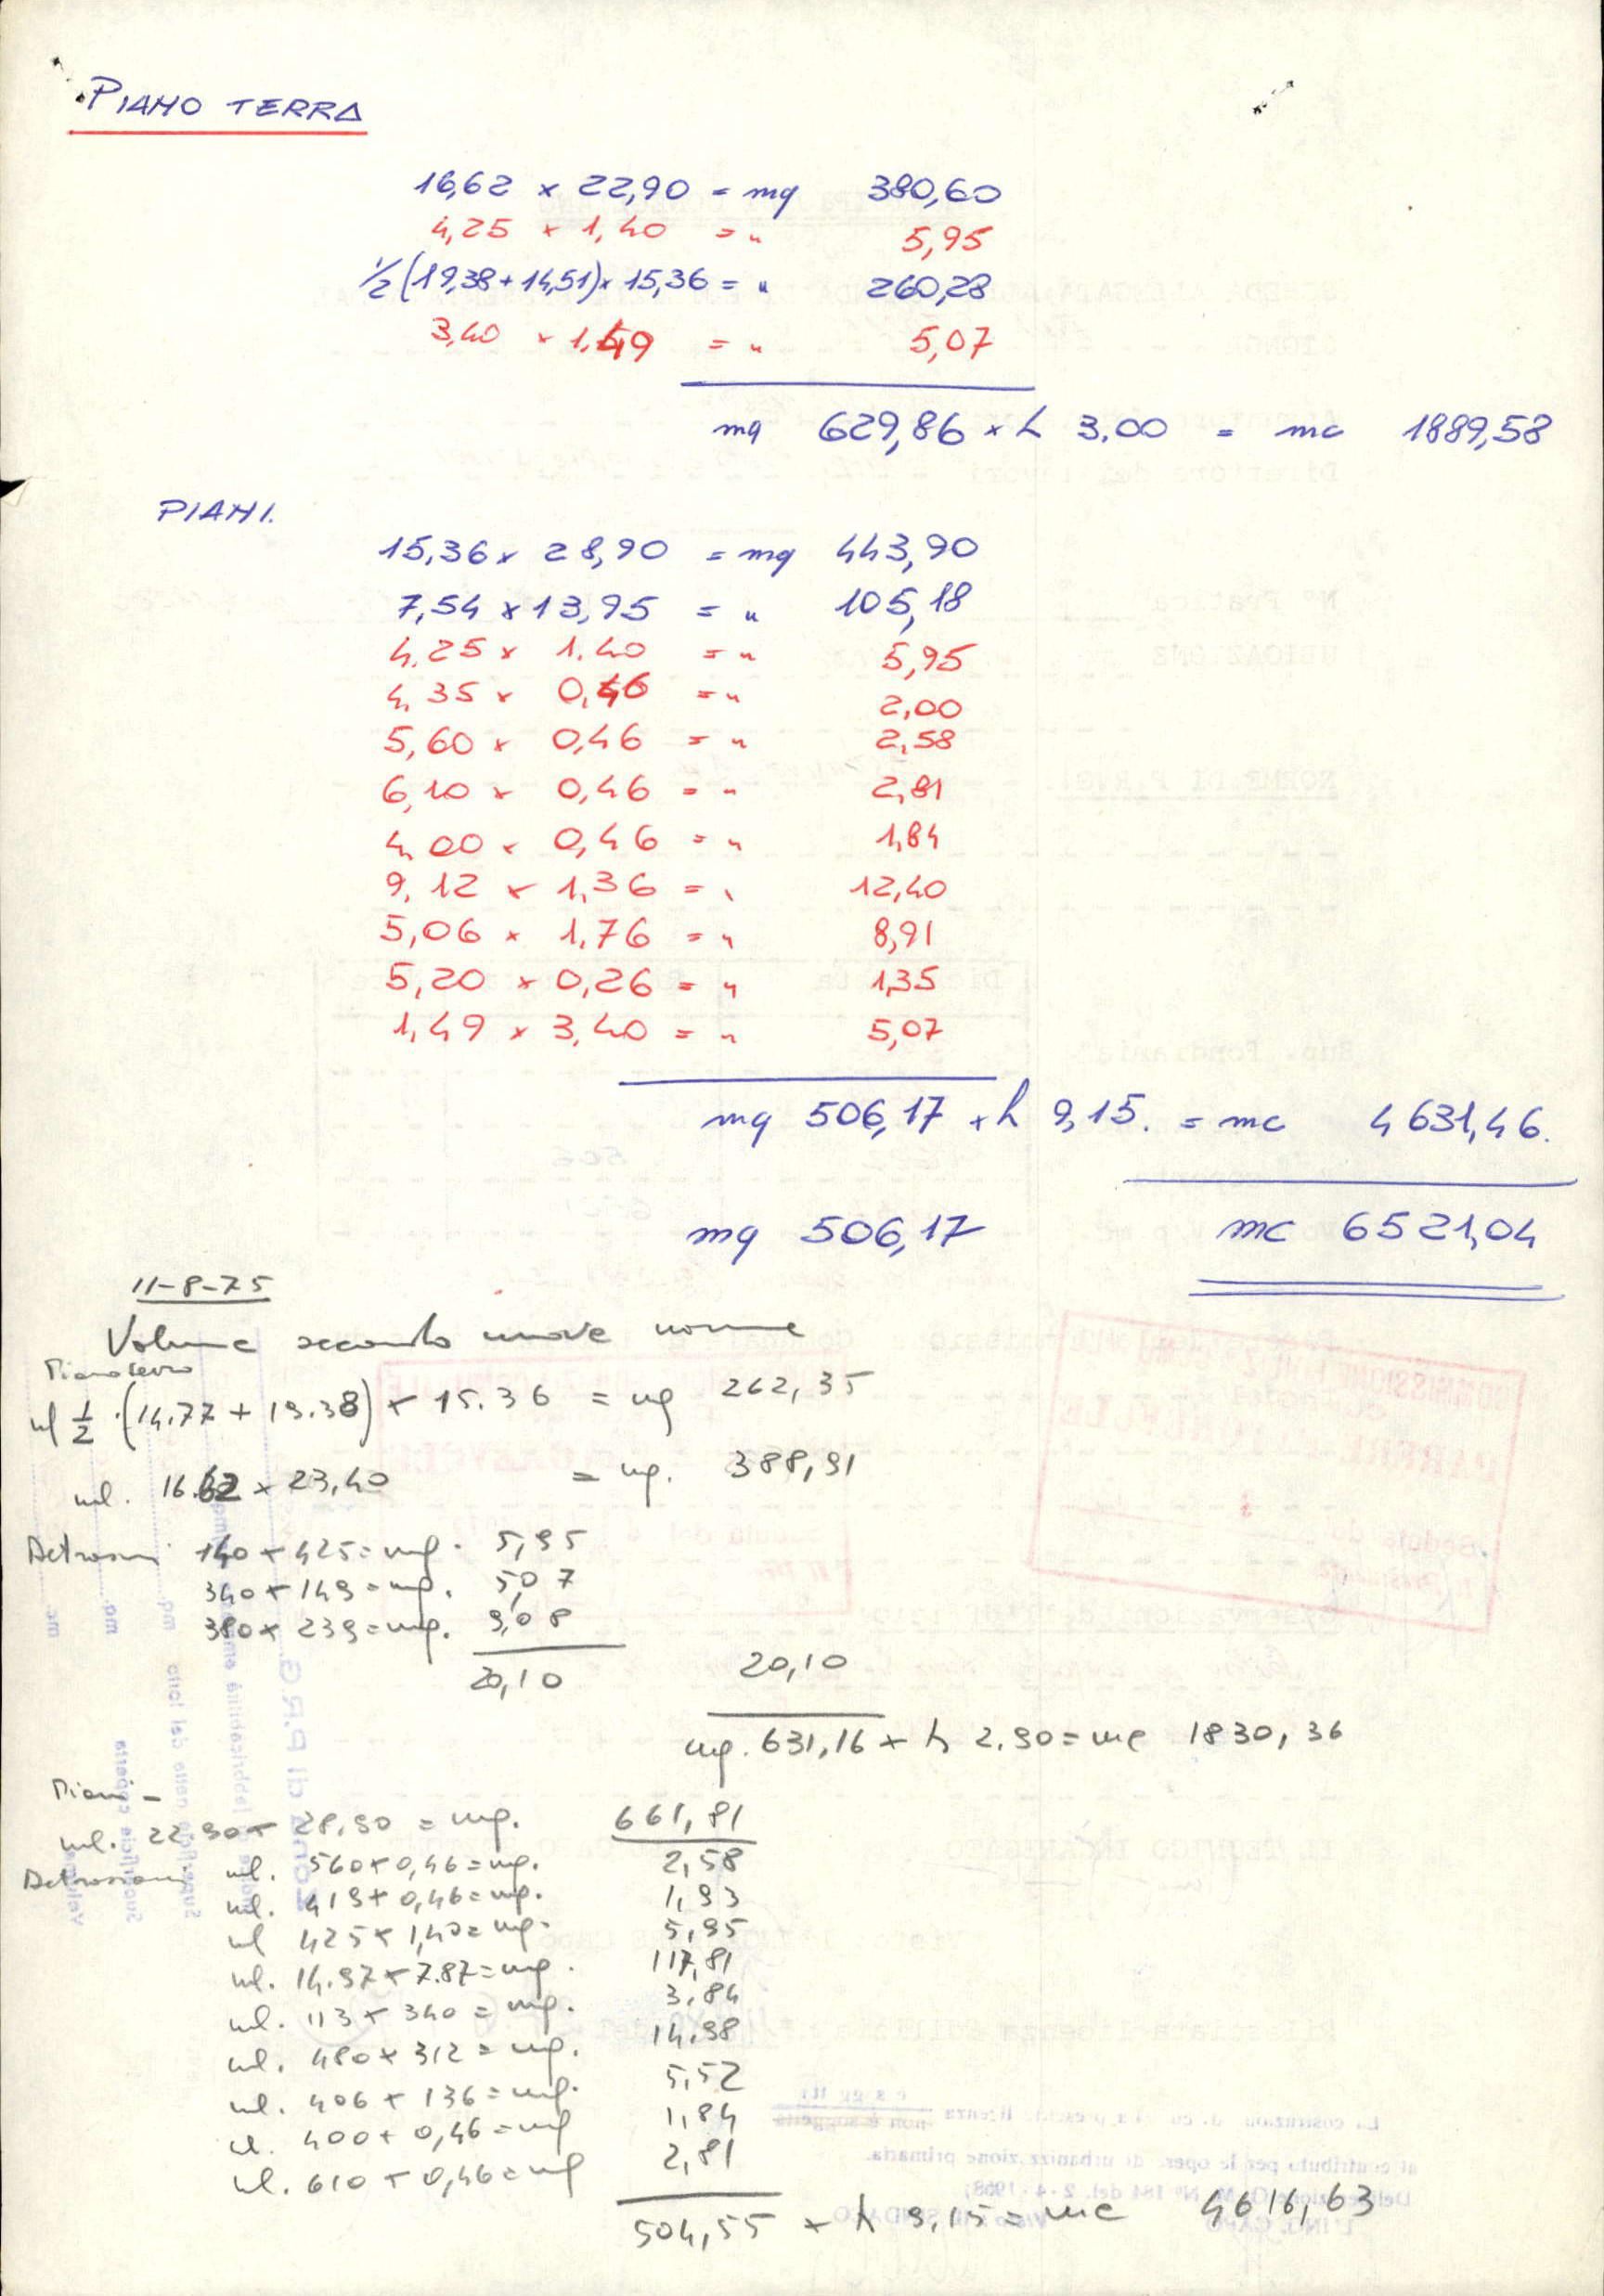 PIANO TERRA
16,62 x 22,90 = mq 380,60
4,25 x 1,40 = " 5,95
1/2 (19,38 + 14,51) x 15,36 = " 260,28
3,40 x 1,49 = " 5,07
mq 629,86 x h 3.00 = mc 1889,58
PIANI.
15,36 x 28,90 = mq 443,90
7,54 x 13,95 = " 105,18
4,25 x 1.40 = " 5,95
4,35 x 0,46 = " 2,00
5,60 x 0,46 = " 2,58
6,10 x 0,46 = " 2,81
4,00 x 0,46 = " 1,84
9,12 x 1,36 = " 12,40
5,06 x 1,76 = " 8,91
5,20 x 0,26 = " 1,35
1,49 x 3,40 = " 5,07
mq 506,17 x h 9,15. = mc 4631,46.
mq 506,17 mc 6521,04
11-8-75
Volume secondo nuove norme
Piano terra
ml 1/2 · (14.77 + 19.38) x 15.36 = mq 262,35
ml. 16.62 x 23,40 = mq. 388,91
Detrazioni 140 x 425 = mq. 5,95
340 x 149 = mq. 5,07
380 x 239 = mq. 9,08
20,10 20,10
mq. 631,16 x h 2.90 = mc 1830,36
Piani -
ml. 22.90 x 28.90 = mq. 661,81
Detrazioni ml. 560 x 0,46 = mq. 2,58
ml. 419 x 0,46 = mq. 1,93
ml 425 x 1,40 = mq. 5,95
ml. 14.97 x 7.87 = mq. 117,81
ml. 113 x 340 = mq. 3,84
ml. 480 x 312 = mq. 14.98
ml. 406 x 136 = mq. 5,52
ml. 400 x 0,46 = mq 1,84
ml. 610 x 0,46 = mq 2,81
504,55 x h 9,15 = mc 4616,63